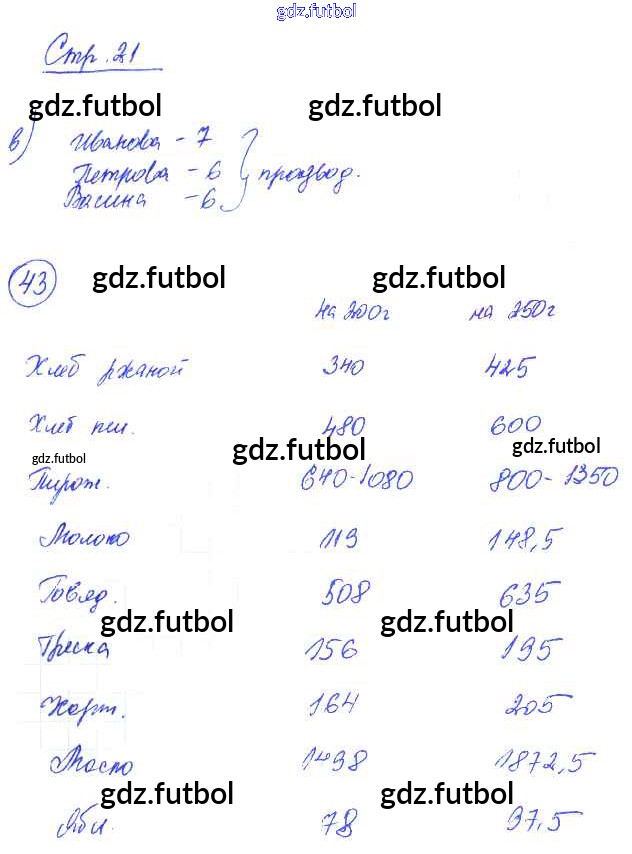 gdz.futbol
Стр. 21
gdz.futbol gdz.futbol
в) Иванова - 7
Петрова - 6 } производ.
Васина - 6
43 gdz.futbol gdz.futbol
на 200г на 250г
Хлеб ржаной 340 425
Хлеб пш. 480 600
gdz.futbol gdz.futbol gdz.futbol
Пирож. 640-1080 800-1350
Молоко 119 148,5
Говяд. 508 635
gdz.futbol gdz.futbol
Треска 156 195
Карт. 164 205
Масло 1498 1872,5
gdz.futbol gdz.futbol
Ябл. 78 97,5